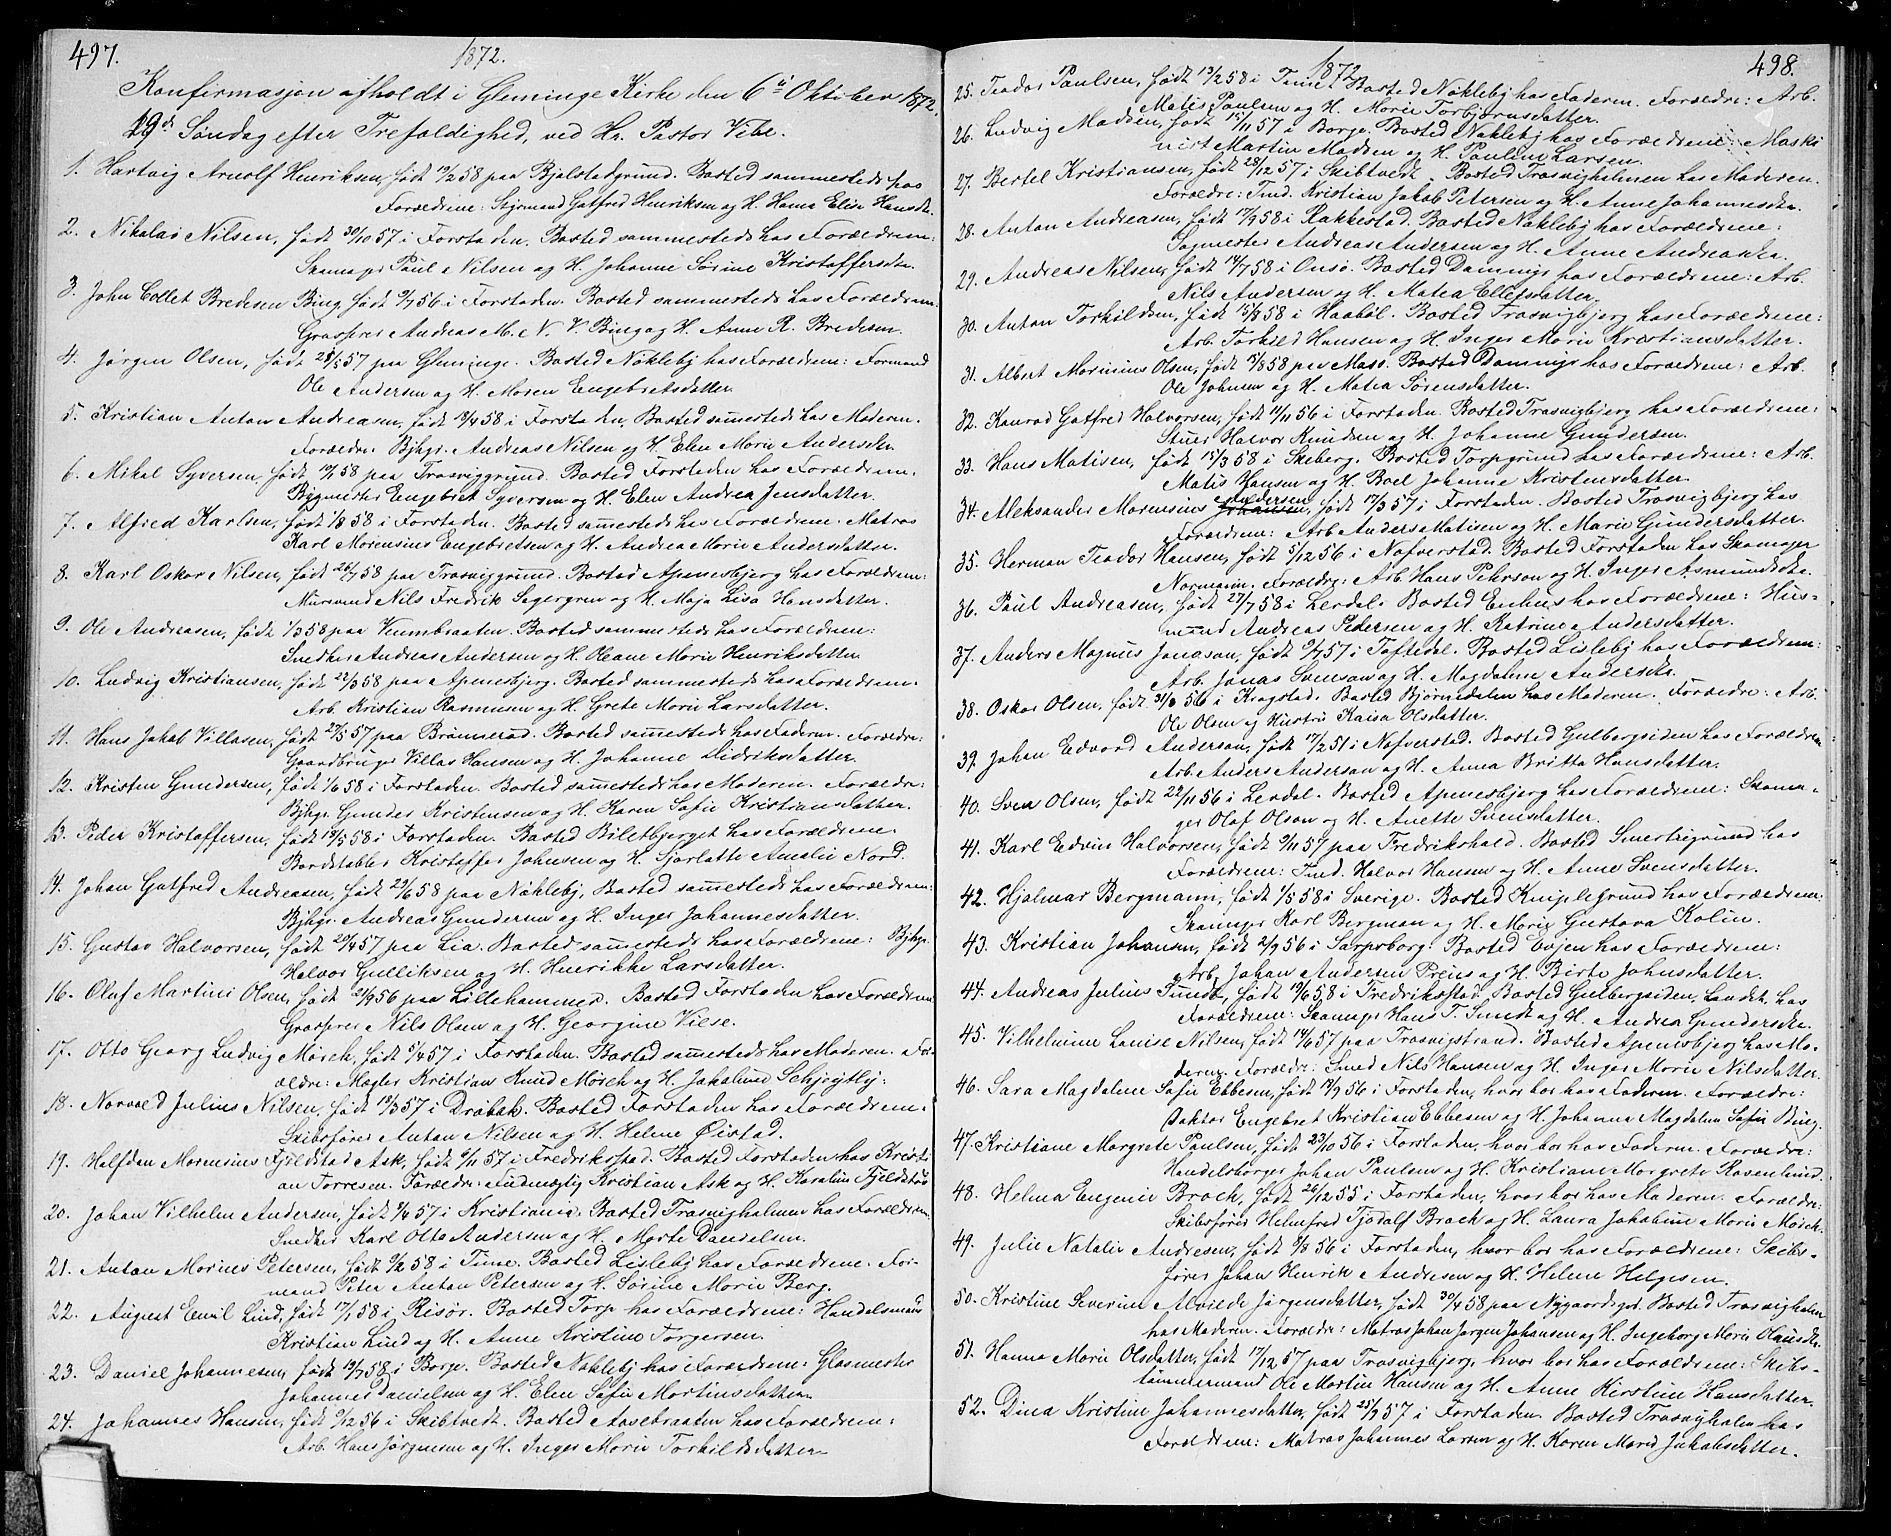 497.
1872.
Konfirmasjon afholdt i Gleminge Kirke den 6te Oktober 1872.
19de Søndag efter Trefoldighed, ved Hr. Pastor Vibe.
1. Hartvig Arnolf Henriksen, født 19/2 58 paa Bjølstadgrund. Bosted sammesteds hos
Forældrene: Styrmand Gotfred Henriksen og H. Hanna Elise Hansdt.
2. Nikolai Nilsen, født 30/10 57 i Forstaden. Bosted sammesteds hos Forældrene:
Skomager Paul Nilsen og H. Johanne Sørine Kristoffersdtr.
3. John Collet Bredesen Bing, født 9/7 56 i Forstaden. Bosted sammesteds hos Forældrene:
Grosserer Andreas M. N. V. Bing og H. Anne R. Bredesen.
4. Jørgen Olsen, født 28/5 57 paa Gleminge. Bosted Nøkleby hos Forældrene: Formand
Ole Andersen og H. Maren Engebretsdatter.
5. Kristian Anton Andreasen, født 13/4 58 i Forstaden, Bosted samesteds hos Moderen.
Forældre: Bjhgr. Andreas Nilsen og H. Elen Marie Andersdtr.
6. Mikal Syversen, født 58 paa Trosviggrund. Bosted Forstaden hos Forældrene:
Bygmester Engebret Syversen og H. Elen Andrea Jensdatter.
7. Alfred Karlsen, født 1/8 58 i Forstaden. Bosted samesteds hos Forældrene: Matros
Karl Morensius Engebretsen og H. Andrea Marie Andersdatter.
8. Karl Oskar Nilsen, født 26/7 58 paa Trosviggrund. Bosted Apenesbjerg hos Forældrene:
Mursvend Nils Fredrik Segergren og H. Maja Lisa Hansdatter.
9. Ole Andreasen, født 1/3 58 paa Veumbraaten. Bosted sammesteds hos Forældrene:
Snedker Andreas Andersen og H. Oleane Marie Henriksdatter.
10. Ludvig Kristiansen, født 22/3 58 paa Apenesbjerg. Bosted sammesteds hos Forældrene:
Arb. Kristian Rasmusen og H. Grete Marie Larsdatter.
11. Hans Jakob Villasen, født 27/5 57 paa Brønnerød. Bosted samesteds hos Faderen. Forældre:
Gaardbruger Villas Hansen og H. Johanne Didriksdatter.
12. Kristen Gundersen, født 1/6 58 i Forstaden. Bosted samesteds hos Moderen. Forældre:
Bjhgr. Gunder Kristensen og H. Karen Sofie Kristiansdatter.
13. Peder Kristoffersen, født 19/5 58 i Forstaden. Bosted Biletbjerget hos Forældrene.
Bordstabler Kristoffer Johnsen og H. Sjarlotte Amalie Nord.
14. Johan Gotfred Andreasen, født 29/6 58 paa Nøkleby. Bosted samesteds hos Forældrene:
Bjhgr. Andreas Gundersen og H. Inger Johannesdatter.
15. Gustav Halvorsen, født 20/4 57 paa Lia. Bosted samesteds hos Forældrene: Bjhgr.
Halvor Gulliksen og H. Henrikke Larsdatter.
16. Oluf Martini Olsen, født 21/9 56 paa Lillehammer. Bosted Forstaden hos Forældrene
Grosserer Nils Olsen og H. Georgine Vilse.
17. Otto Georg Ludvig Mørch, født 5/4 57 i Forstaden. Bosted samesteds hos Moderen. For-
ældre: Mægler Kristian Knud Mørch og H. Jakobine Schjøytly:
18. Norvald Julius Nilsen, født 19/3 57 i Drøbak. Bosted Forstaden hos Forældrene:
Skibsfører Anton Nilsen og H. Helene Øistad.
19. Halfdan Morensius Fjeldstad Ask, født 9/11 57 i Fredrikstad. Bosted Forstaden hos Kristi-
an Torresen. Forældre: Fuldmægtig Kristian Ask og H. Karoline Fjeldstad
20. Johan Vilhelm Andersen, født 9/4 57 i Kristiania. Bosted Trosvigholmen hos Forældrene:
Snedker Karl Otto Andersen og H. Marte Danielsen.
21. Anton Marius Petersen, født 9/2 58 i Tune. Bosted Lisleby hos Forældrene: For-
mand Peter Anton Petersen og H. Sørine Marie Berg.
22. August Emil Lind, født 17/1 58 i Risør. Bosted Torp hos Forældrene: Handelsmand
Kristian Lind og H. Anne Kristine Torgersen.
23. Daniel Johannesen, født 19/7 58 i Borge. Bosted Nøkleby hos Forældrene: Glasmester
Johannes Danielsen og H. Elen Sofie Martinsdatter.
24. Johannes Hansen, født 9/12 56 i Skibtvedt. Bosted Aasebraaten hos Forældrene:
Arb. Hans Jørgensen og H. Inger Marie Torkildsdatter.
1872
498.
25. Teodor Paulsen, født 13/2 58 i Tune. Bosted Nøkleby hos Faderen. Forældre: Arb.
Matis Paulsen og H. Marie Torbjørnsdatter.
26. Ludvig Madsen, født 15/11 57 i Borge. Bosted Nøkleby hos Forældrene: Maski-
nist Martin Madsen og H. Pauline Larsen.
27. Bertel Kristiansen, født 28/12 57 i Skibtvedt. Bosted Trosvigholmen hos Moderen.
Forældre: Tmd. Kristian Jakob Petersen og H. Anne Johannesdtr.
28. Anton Andreasen, født 17/9 58 i Rakkestad. Bosted Nøkleby hos Forældrene:
Sagmester Andreas Andersen og H. Anne Andreasdtr.
29. Andreas Nilsen, født 14/7 58 i Onsø. Bosted Damnings hos Forældrene: Arb.
Nils Andersen og H. Matea Ellefsdatter.
30. Anton Torkildsen, født 15/8 58 i Haabøl. Bosted Trosvigbjerg hos Forældrene:
Arb. Torkild Hansen og H. Inger Marie Kristiansdatter.
31. Albert Morinius Olsen, født 5/8 58 paa Moss. Bosted Damnings hos Forældrene: Arb.
Ole Johnsen og H. Matea Sørensdatter.
32. Konrad Gotfred Halvorsen, født 11/11 56 i Forstaden. Bosted Trosvigbjerg hos Forældrene:
Stuer Halvor Knudsen og H. Johanne Gundersen.
33. Hans Matisen, født 15/3 58 i Skeberg. Bosted Torpgrund hos Forældrene: Arb.
Matis Hansen og H. Boel Johanne Kristensdatter.
34. Aleksander Morensius Johansen Andersen, født 17/3 57 i Forstaden. Bosted Trosvigbjerg hos
Forældrene: Arb Anders Matisen og H. Marie Gundersdatter.
35. Herman Teodor Hansen, født 5/12 56 i Nafverstad. Bosted Forstaden hos Skomager
Normann. Forældre: Arb. Hans Peterson og H. Inger Asmundsdtr.
36. Paul Andreasen, født 27/7 58 i Lerdal. Bosted Enhus hos Forældrene: Hus-
mand Andreas Pedersen og H. Katrine Andersdatter.
37. Anders Magnus Jonason, født 9/4 57 i Töftedal. Bosted Lisleby hos Forældrene:
Arb. Jonas Svenson og H. Magdalene Andersdtr.
38. Oskar Olsen, født 31/8 56 i Kragstad. Bosted Bjørnedalen hos Moderen. Forældre: Arb.
Ole Olsen og Hustru Kaisa Olsdatter.
39. Johan Edvard Anderson, født 17/2 51 i Nafverstad. Bosted Gulbergsiden hos Forældrene
Arb. Anders Anderson og H. Anna Britta Hansdatter.
40. Sven Olsen, født 22/11 56 i Lerdal. Bosted Apenesbjerg hos Forældrene: Skoma-
ger Olaf Olson og H. Anette Svensdatter.
41. Karl Edvin Halvorsen, født 9/11 57 paa Fredrikshald. Bosted Smertugrund hos
Forældrene: Tmd. Halvor Hansen og H. Anne Svensdatter.
42. Hjalmar Bergmann, født 1/5 58 i Sverige. Bosted Kniplegrund hos Forældrene:
Skomager Karl Bergman og H. Marie Gustava Kolin.
43. Kristian Johansen, født 2/9 56 i Sarpsborg. Bosted Evjen hos Forældrene:
Arb. Johan Andersen Preus og H. Birte Johnsdatter.
44. Andreas Julius Sundt, født 19/6 58 i Fredrikstad. Bosted Gulbergsiden, Landet, hos
Forældrene: Skomager Hans T. Sundt og H. Andrea Gundersdtr.
45. Vilhelmine Louise Nilsen, født 14/6 57 paa Trosvigstrand. Bosted Apenesbjerg hos Mo-
deren. Forældre: Smed Nils Hansen og H. Inger Marie Nilsdatter.
46. Sara Magdalene Sofie Ebbesen, født 17/9 56 i Forstaden, hvor bor hos Faderen. Forældre:
Doktor Engebret Kristian Ebbesen og H. Johanna Magdalena Sofie Bing.
47. Kristiane Margrete Paulsen, født 23/10 56 i Forstaden, hvor bor hos Faderen. Forældre:
Handelsborger Johan Paulsen og H. Kristiane Margrete Ravenlund.
48. Helma Eugenie Brock, født 26/12 55 i Forstaden, hvor bor hos Moderen. Forældre:
Skibsfører Helmfred Tjodalf Brock og H. Laura Jakobine Marie Mørch.
49. Julie Natalie Andresen, født 8/8 56 i Forstaden, hvor bor hos Forældrene: Skibs-
fører Johan Henrik Andresen og H. Helene Helgesen.
50. Kristine Severine Alvilde Jørgensdatter, født 30/4 58 paa Nygaardsgd. Bosted Trosvigholm
hos Moderen. Forældre: Matros Johan Jørgen Johansen og H. Ingeborg Marie Olausdtr.
51. Hanna Marie Olsdatter, født 17/12 57 paa Trosvigbjerg, hvor bor hos Forældrene: Skibs-
tømmermand Ole Martin Hansen og H. Anne Kirstine Hansdatter.
52. Dina Kristine Johannesdatter, født 25/9 57 i Forstaden. Bosted Trosvigholm hos
Forældrene: Matros Johannes Larsen og H. Karen Marie Jakobsdatter.